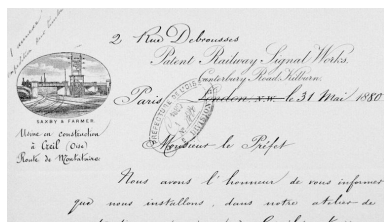 2 Rue Debrousses
Patent Railway Signal Works.
Canterbury Road, Kilburn.
Paris London N.W. le 31 Mai 1880
SAXBY & FARMER.
Usine en Construction
à Creil (Oise)
Route de Montataire
PRÉFECTURE DE L'OISE
DIVISION
Monsieur le Préfet
Nous avons l'honneur de vous informer
que nous installons, dans notre atelier de